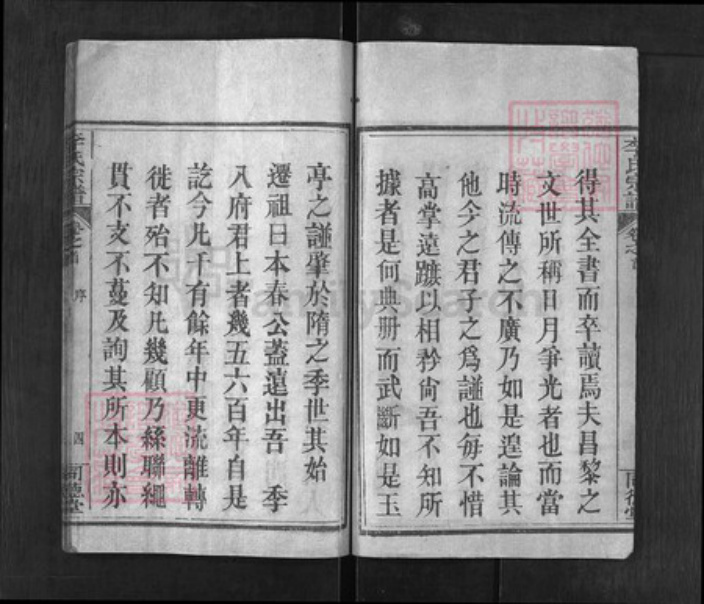 得其全書而卒讀焉夫昌黎之
文世所稱日月爭光者也而當
時流傳之不廣乃如是遑論其
他今之君子之爲譜也每不惜
高掌遠蹠以相矜尙吾不知所
據者是何典册而武斷如是玉
亭之譜肇於隋之季世其始
遷祖曰本春公蓋遠出吾 季
入府君上者幾五六百年自是
訖今凡千有餘年中更流離轉
徙者殆不知凡幾顧乃絲聯繩
貫不支不蔓及詢其所本則亦
李氏宗譜
卷之首
序
四